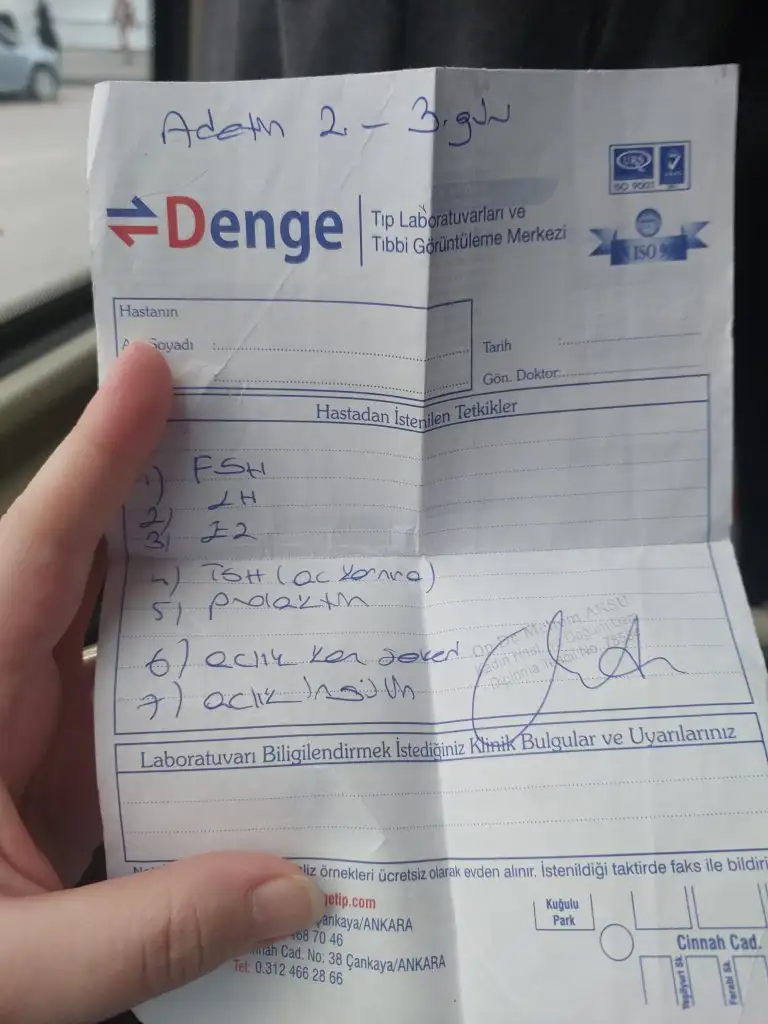 Adetin 2. - 3. gün
Denge
Tıp Laboratuvarları ve
Tıbbi Görüntüleme Merkezi
ISO 9001
ISO 9
Hastanın
Soyadı :
Tarih :
Gön. Doktor:
Hastadan İstenilen Tetkikler
1) FSH
2) LH
3) E2
4) TSH (aç karına)
5) prolaktin
6) açlık kan şekeri
7) açlık insülin
Op. Dr.
Diploma Tescil No:
Laboratuvarı Biligilendirmek İstediğiniz Klinik Bulgular ve Uyarılarınız
örnekleri ücretsiz olarak evden alınır. İstenildiği taktirde faks ile bildiri
getip.com
Çankaya/ANKARA
468 70 46
Cinnah Cad. No: 38 Çankaya/ANKARA
Tel: 0.312 466 28 66
Kuğulu
Park
Cinnah Cad.
Yeşilyurt Sk.
Farabi Sk.